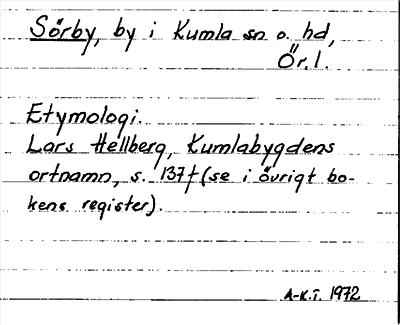 Sörby, by i Kumla sn o. hd,
Ör.l.
Etymologi.
Lars Hellberg, Kumlabygdens
ortnamn, s. 137f (se i övrigt bo-
kens register).
A-K.T. 1972